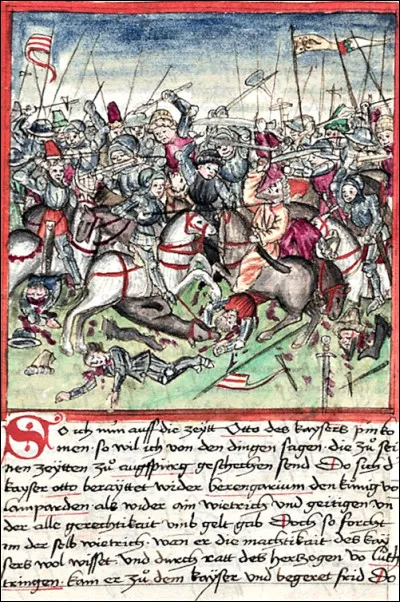 So ich nun auff die zeytt Otto des kaysers pin ko
men so wil ich von den dingen sagen die zu sei
nen zeytten zu augspurg geschechen send Do sich d
kayser otto berayttet wider berengarium den künig vo
lamparden als wider ain wietrich und geitigen von
der alle gerechtikait umb gelt gab Doch so forcht
im der selb wietrich wan er die machtikait des kay
sers wol wisset und durch ratt des herzogen vo luth
tringen kam er zu dem kayser und begeret frid Do